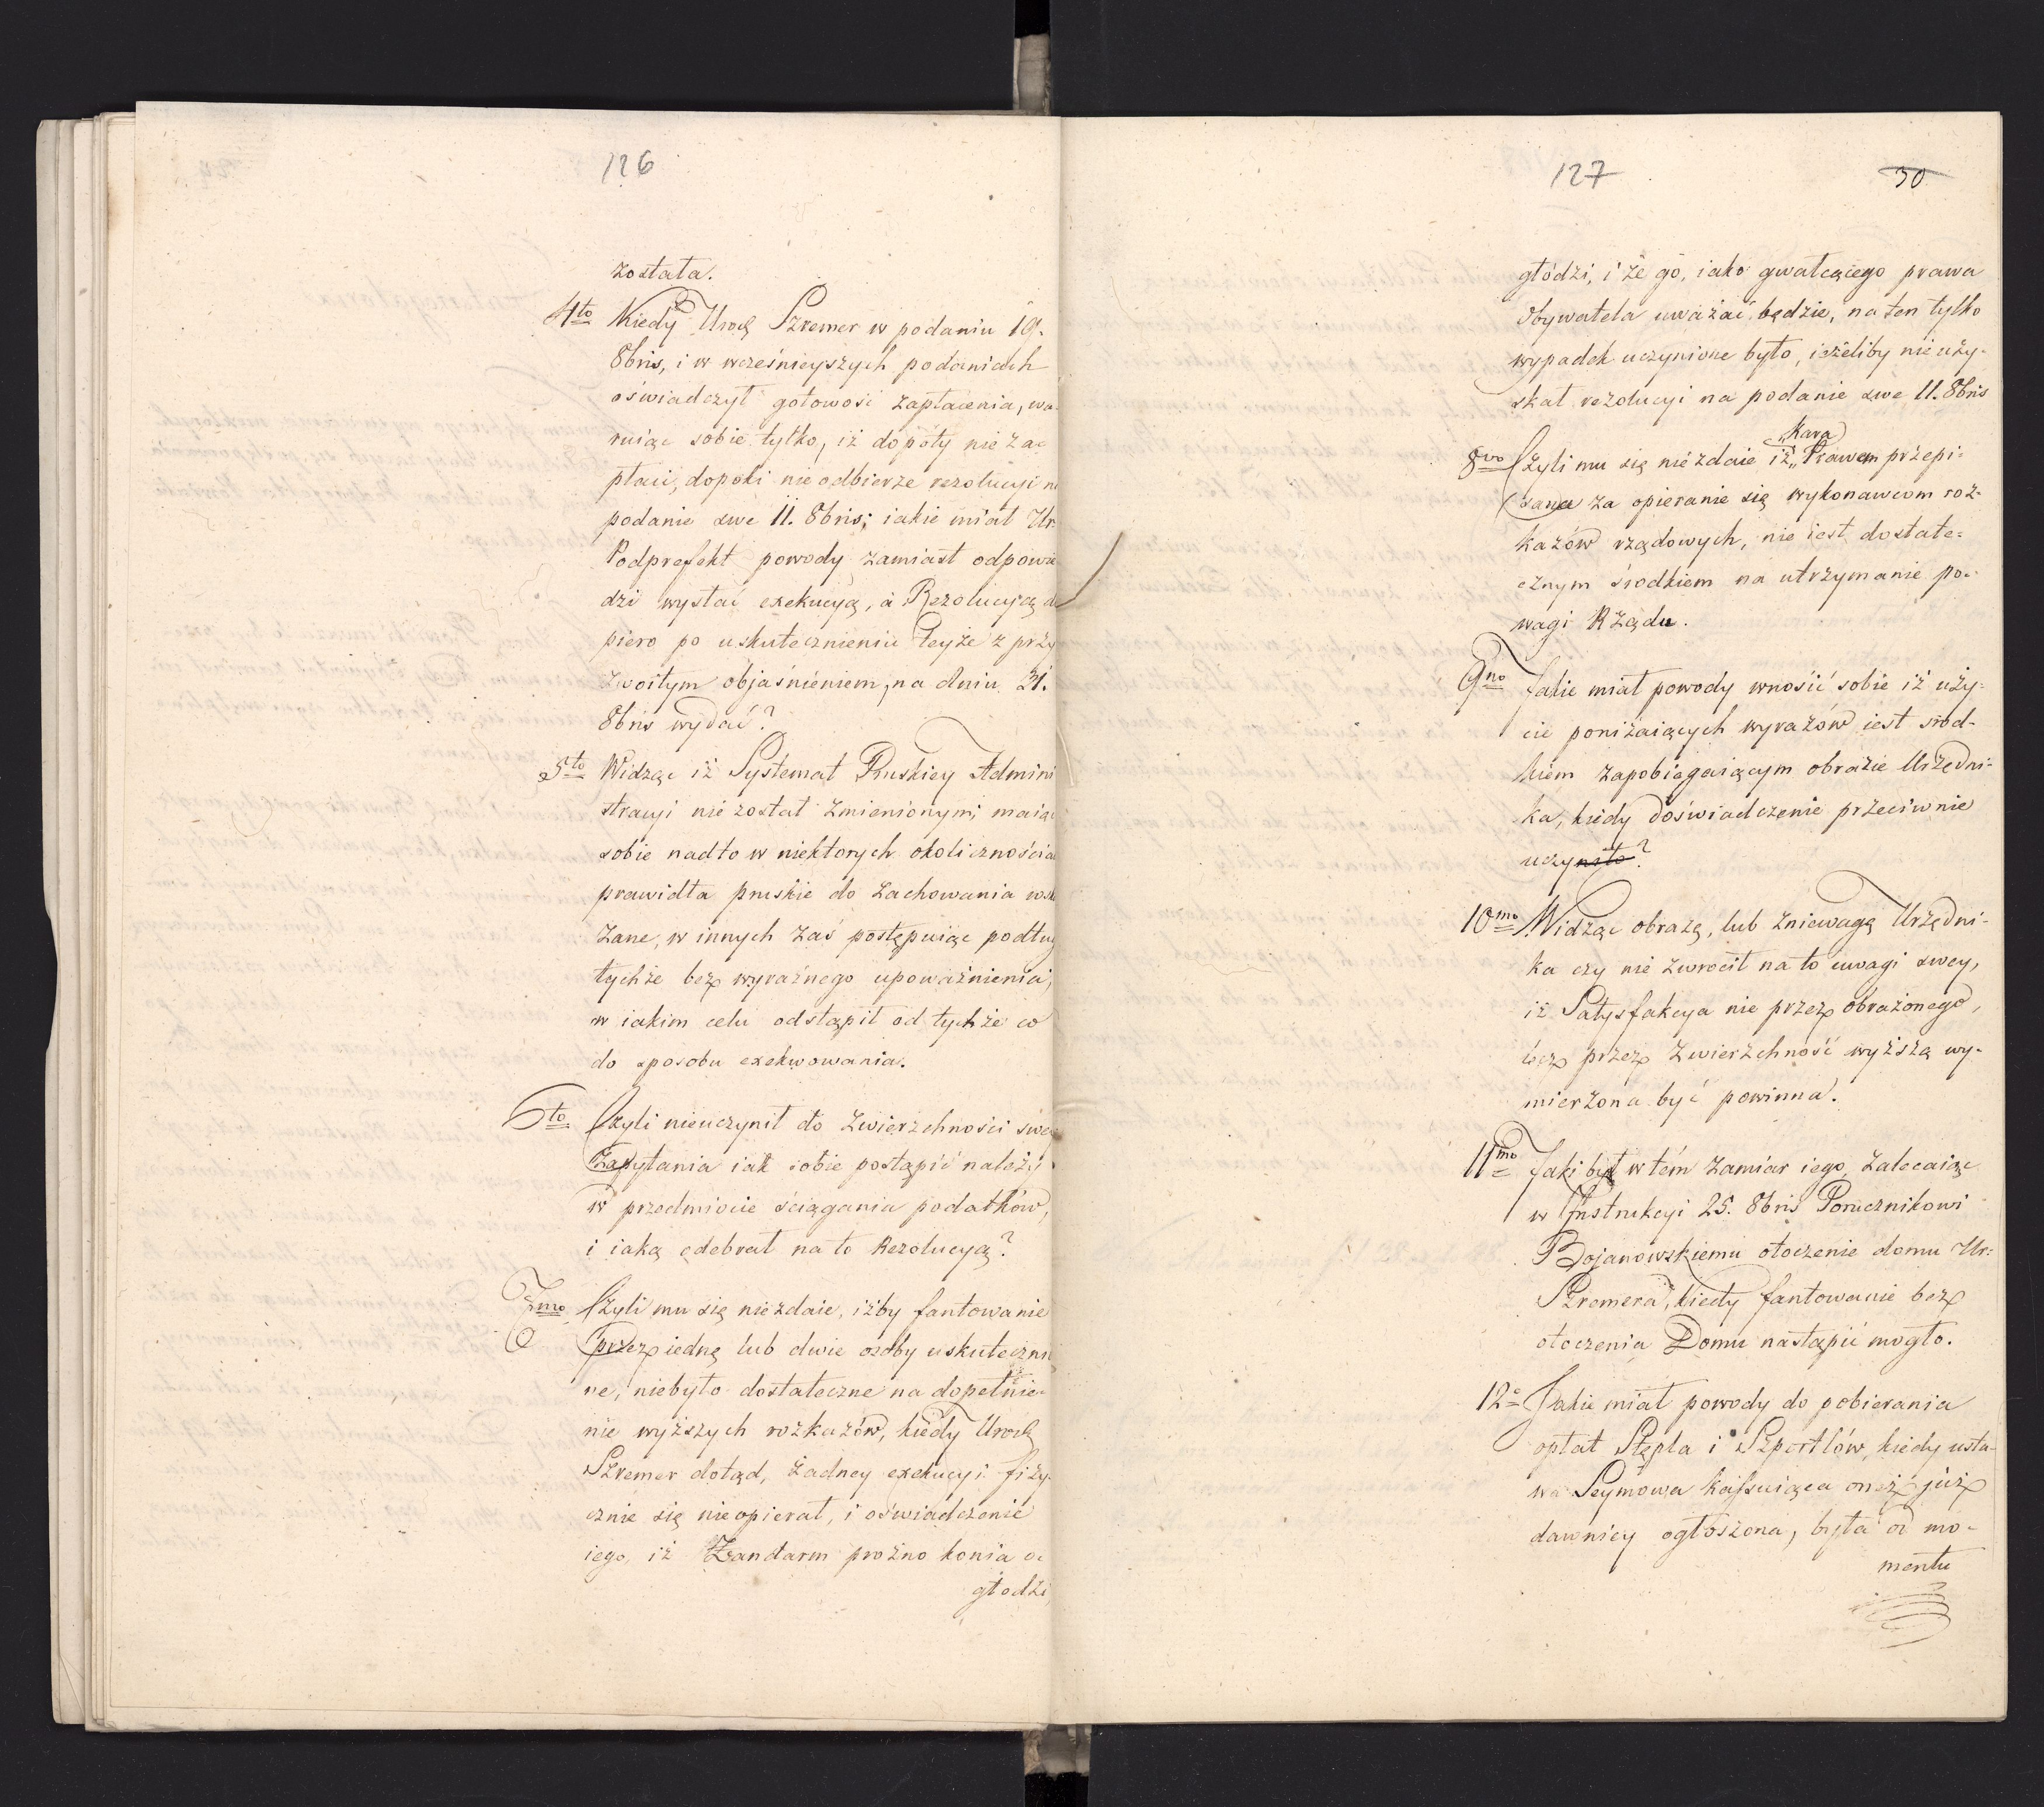 126
została.
4to Kiedy Urodz Szremer w podaniu 19.
8bris, i w wcześnieyszych podaniach
oświadczył gotowość zapłacenia, wa-
ruiąc sobie tylko, iż dopóty nie za-
płaci, dopoki nie odbierze rezolucyi na
podanie swe 11. 8bris; iakie miał Ur.
Podprefekt powody zamiast odpowie
dzi wysłać exekucyą, a Rezolucyą do
piero po uskutecznieniu teyże z przy
zwoitym objaśnieniem, na dniu 31.
8bris wydać?
5to Widząc iż Systemat Pruskiey Admini
stracyi nie został zmienionym; maiąc
sobie nadto w niektorych okolicznościa
prawidła pruskie do zachowania wska
zane, w innych zaś postępuiąc podług
tychże bez wyraźnego upoważnienia,
w iakim celu odstąpił od tychże co
do sposobu exekwowania.
6to Czyli nieuczynił do Zwierzchności swey
Zapytania iak sobie postąpić należy
w przedmiocie ściągania podatków,
i iaką odebrał na to Rezolucyą?
7mo Czyli mu się niezdaie, iżby fantowanie
przez iedną lub dwie osoby uskutecznio
ne, niebyło dostateczne na dopełnie-
nie wyższych rozkazów, kiedy Urodz
Szremer dotąd, żadney exekucyi fizy-
cznie się nieopierał, i oświadczenie
iego, iż Żandarm prożno konia o-
głodzi
127 30
głodzi, i że go, iako gwałcącego prawa
Obywatela uważać będzie, na ten tylko
wypadek uczynione było, ieżeliby nie uzy-
skał rezolucyi na podanie swe 11. 8bris
Kara
8vo Czyli mu się niezdaie iż Prawem przepi-
sana za opieranie się wykonawcom roz-
kazów rządowych, nie iest dostate-
cznym środkiem na utrzymanie po-
wagi Rządu.
9no Jakie miał powody wnosić sobie iż uży-
cie poniżaiących wyrazów iest środ-
kiem zapobiegaiącym obrazie Urzędni-
ka, kiedy doświadczenie przeciwnie
uczyniło?
10mo Widząc obrazę, lub zniewagę Urzędni-
ka czy nie zwrocił na to uwagi swey,
iż Satysfakcya nie przez obrażonego,
lecz przez Zwierzchność wyższą wy-
mierzona być powinna.
11mo Jaki był w tém zamiar iego, zalecaiąc
w Instrukcyi 25. 8bris Porucznikowi
Bojanowskiemu otoczenie domu Ur-
Szremera, kiedy fantowanie bez
otoczenia Domu nastąpić mogło.
12o Jakie miał powody do pobierania
opłat Stępla i Szportlów, kiedy usta-
wa Seymowa kassuiąca one, już
dawniey ogłoszona, była od mo-
mentu